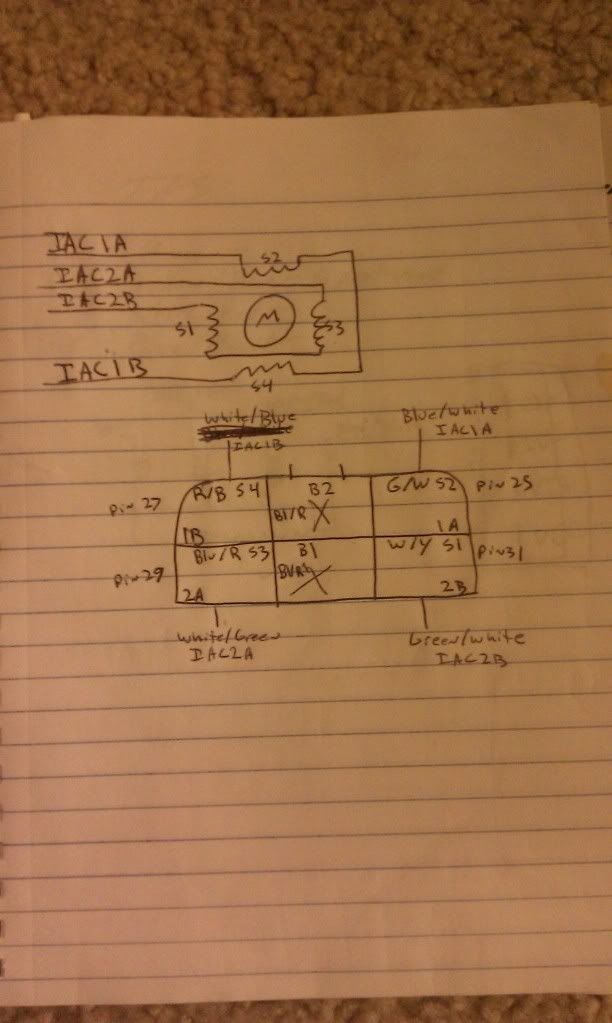 IAC1A
S2
IAC2A
IAC2B
S1 M S3
IAC1B
S4
White/Blue
IAC1B
Blue/white
IAC1A
Pin 27 R/B S4 B2 G/W S2 Pin 25
Bl/R X
1B 1A
Pin 29 Blu/R S3 B1 W/Y S1 Pin 31
X
2A 2B
White/Green
IAC2A
Green/white
IAC2B